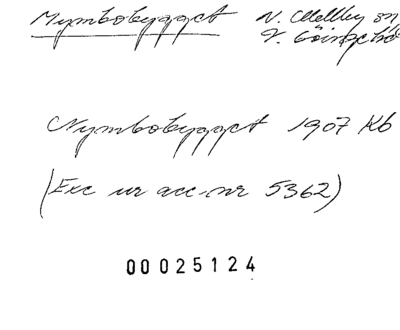 Nymbobygget N. Mellby sn
V. Göinge hd
Nymbobygget 1907 Kb
(Exc ur acc.nr 5362)
00025124